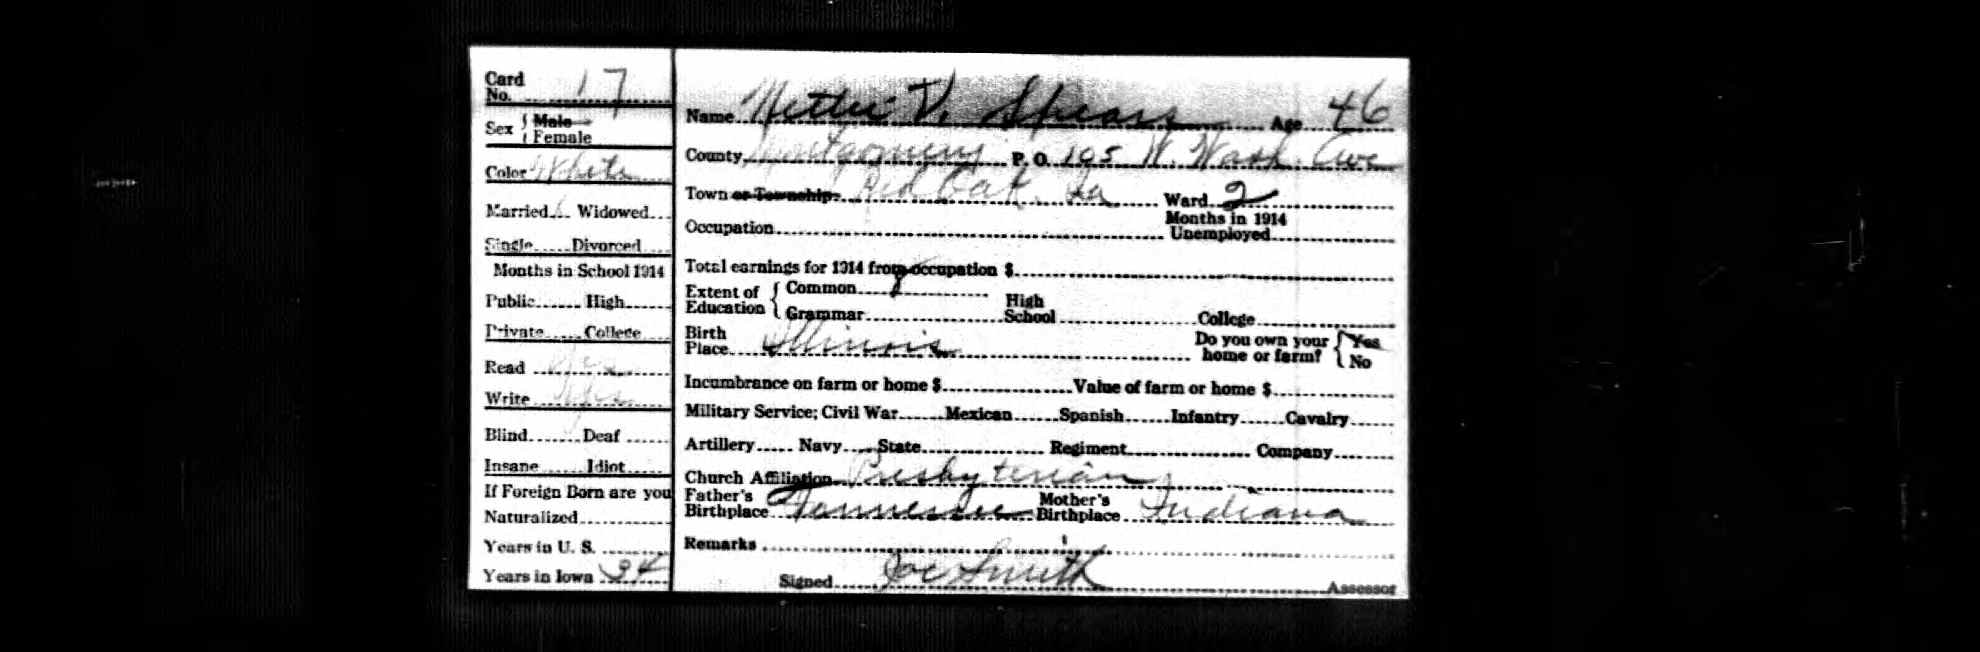 Card No. 17
Sex { Male Female
Color White
Married Widowed
Single Divorced
Months in School 1914
Public High
Private College
Read Yes
Write Yes
Blind Deaf
Insane Idiot
If Foreign Born are you
Naturalized
Years in U. S.
Years in Iowa 34
Name Nettie V. Spears Age 46
County Montgomery P. O. 105 W. Wash. Ave
Town or Township Red Oak, Ia Ward 2
Occupation Months in 1914 Unemployed
Total earnings for 1914 from occupation $
Extent of Education { Common 8 Grammar High School College
Birth Place Illinois Do you own your home or farm? { Yes No
Incumbrance on farm or home $ Value of farm or home $
Military Service; Civil War Mexican Spanish Infantry Cavalry
Artillery Navy State Regiment Company
Church Affiliation Presbyterian
Father's Birthplace Tennessee Mother's Birthplace Indiana
Remarks
Signed Joe Smith Assessor